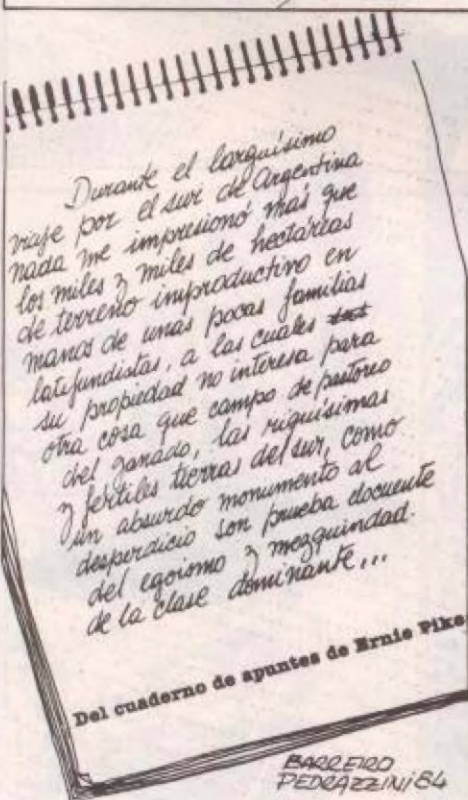 Durante el larguísimo
viaje por el sur de Argentina
nada me impresionó más que
los miles y miles de hectáreas
de terreno improductivo en
manos de unas pocas familias
latifundistas, a las cuales
su propiedad no interesa para
otra cosa que campo de pastoreo
del ganado, las riquísimas
y fértiles tierras del sur, como
un absurdo monumento al
desperdicio son prueba elocuente
del egoismo y mezquindad.
de la clase dominante,...
Del cuaderno de apuntes de Ernie Pike
BARREIRO
PEDRAZZINI/84